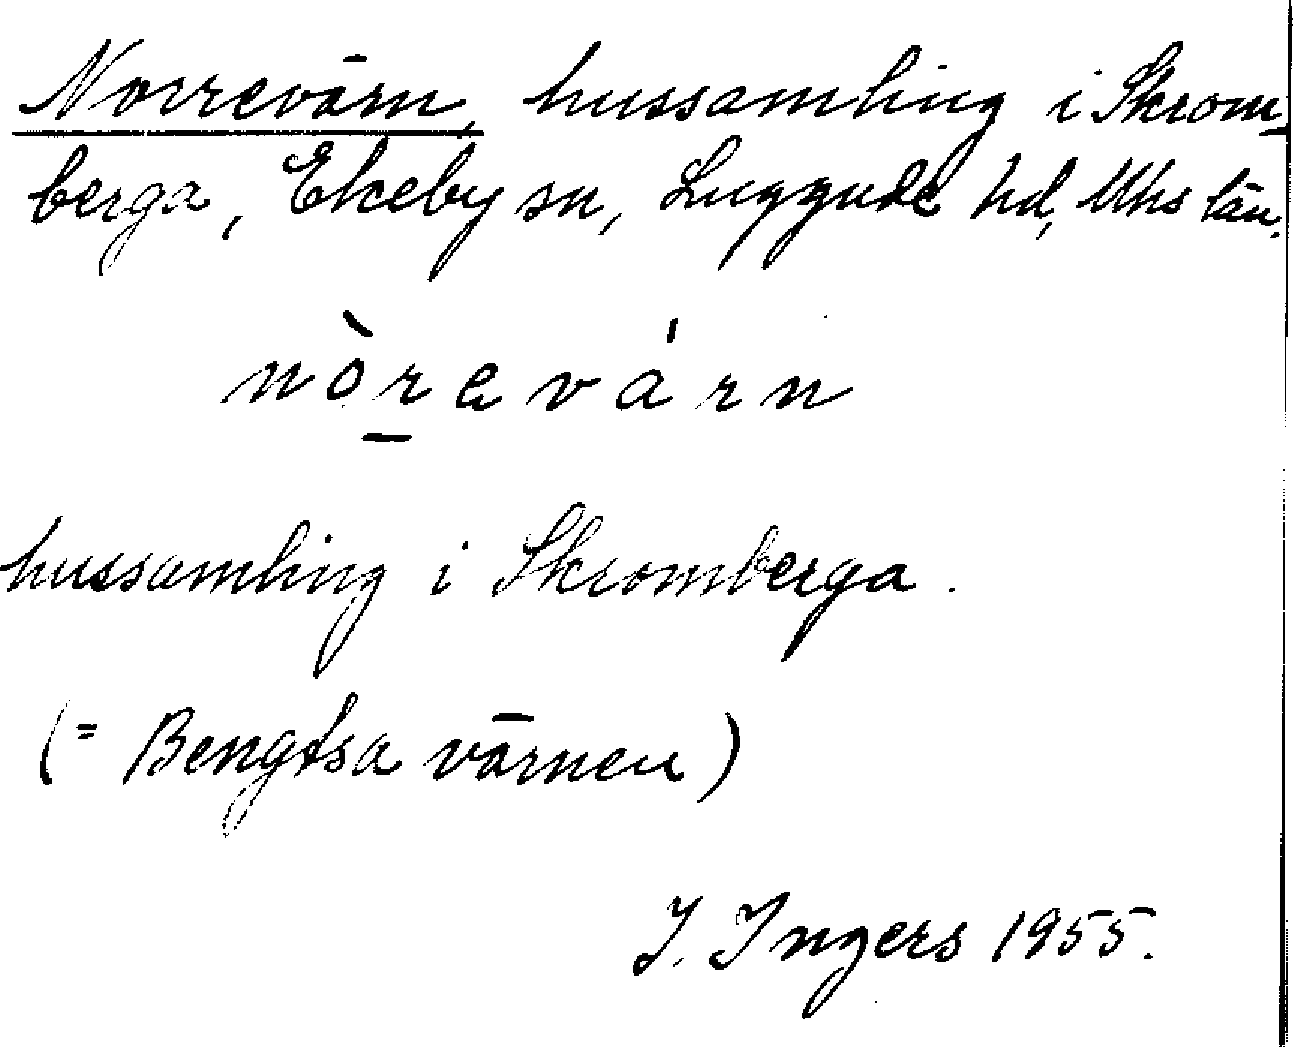 Norrevärn, hussamling i Skrom-
berga, Ekeby sn, Luggude hd, Mhs län.
nòrevárn
hussamling i Skromberga.
(= Bengtsa värnen)
I. Ingers 1955.